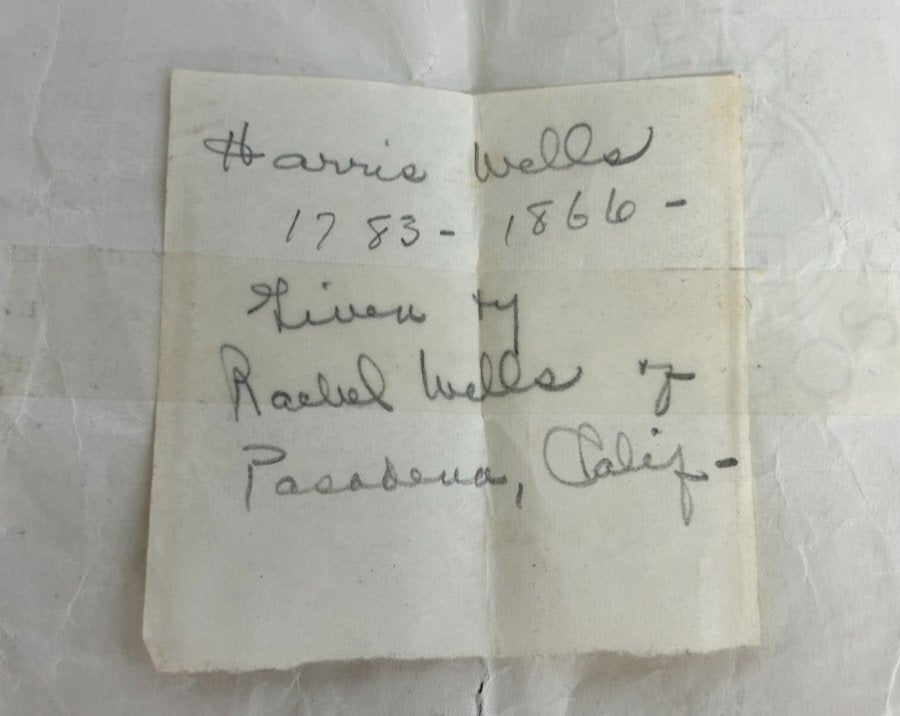 Harris Wells
1783 - 1866 -
Given by
Rachel Wells of
Pasadena, Calif -